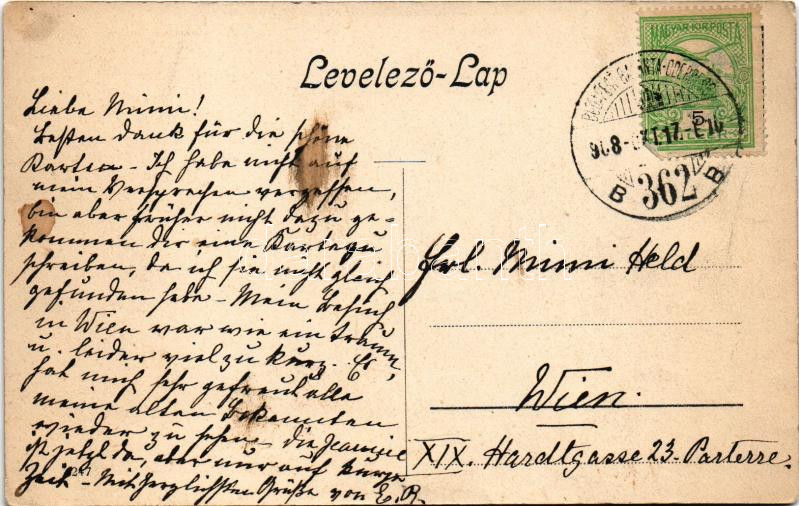 Levelező-Lap
MAGYAR KIR. POSTA
5
BUDAPEST GALÁNTA-ODERBERG
362
B B
Liebe Mimi!
Besten Dank für die schöne
Karten - Ich habe nicht auf
mein Versprechen vergessen,
bin aber früher nicht dazu ge-
kommen dir eine Karte zu
schreiben, da ich sie nicht gleich
gefunden habe - Mein Besuch
in Wien war wie ein Traum,
u. leider viel zu kurz. Es
hat mich sehr gefreut alle
meine alten Bekannten
wieder zu sehen - die
ist jetzt da, aber nur auf kurze
Zeit - Mit herzlichsten Grüße von E. R.
Frl. Mimi Held
Wien.
XIX. Hardtgasse 23. Parterre.